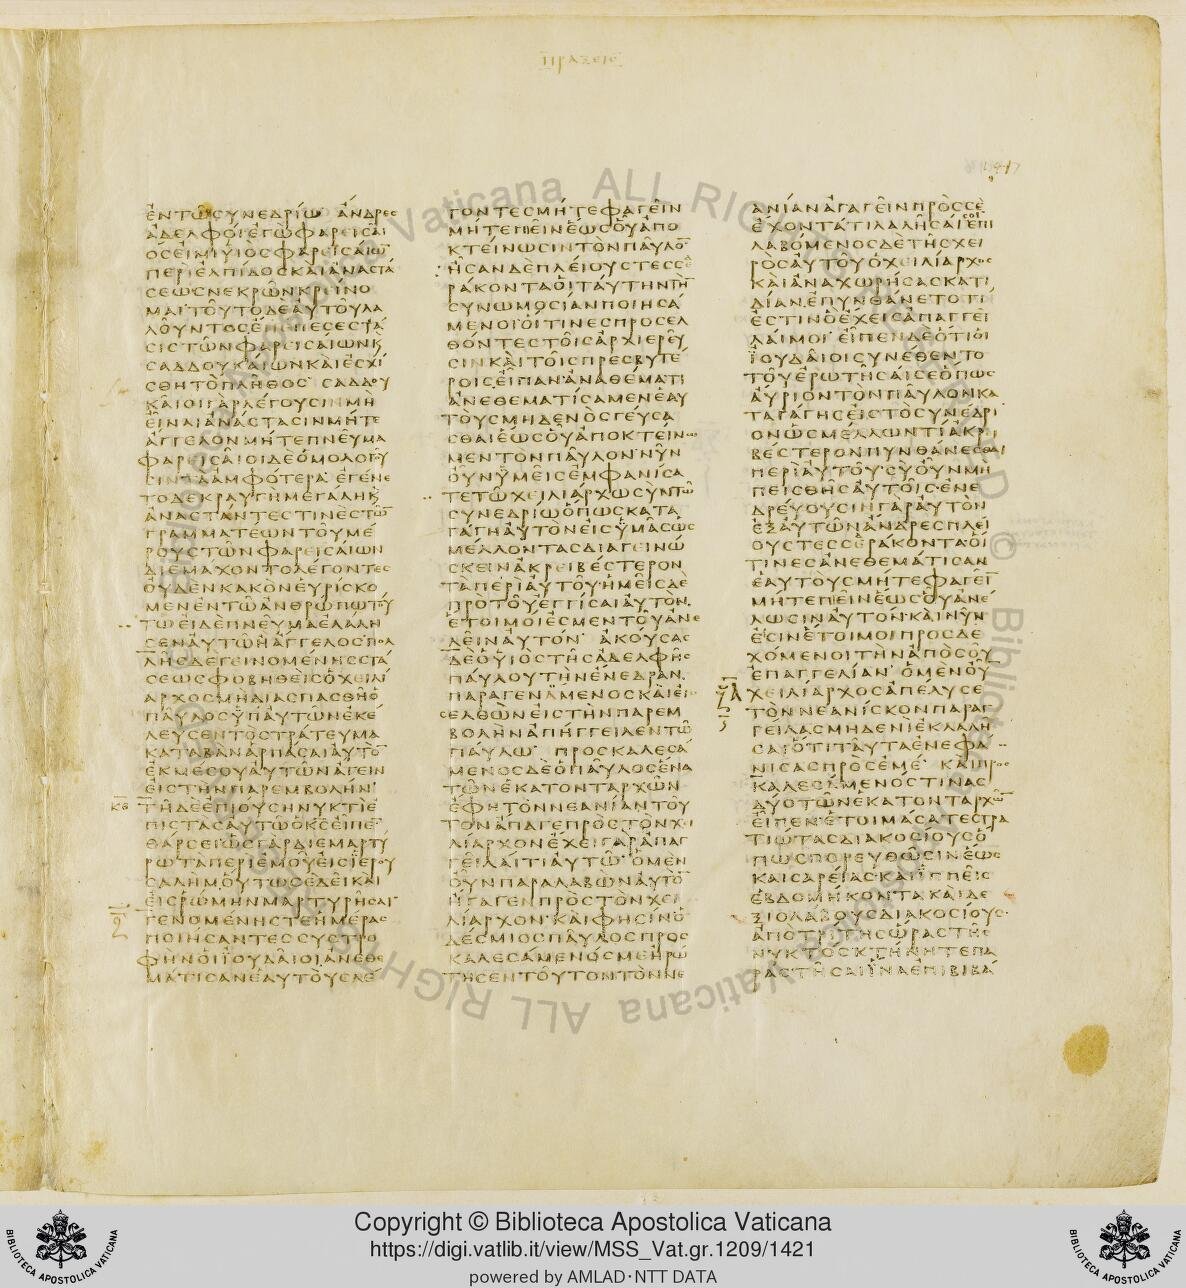 ΠΡΑΞΕΙΣ
ἐΝΤῶΣΥΝΕΔΡΊω ἌΝΔΡΕΣ
ἀΔΕΛΦΟΊἐΓὼΦΑΡΕΙΣΑῖ
ΟΣΕἰΜΙΥἱὸΣΦΑΡΕΙΣΑΊω̅
ΠΕΡῚἐΛΠΊΔΟΣΚΑῚἀΝΑΣΤΆ
ΣΕωΣΝΕΚΡῶΝΚΡΕΊΝΟ
ΜΑΙ ΤΟῦΤΟΔΕΑὐΤΟῦΛΑ
ΛΟῦΝΤΟΣἐΠΕΠΕΣΕΣΤΆ
ΣΙΣΤῶΝΦΑΡΕΙΣΑΊωΝΚ
ΣΑΔΔΟΥΚΑΊωΝΚΑῚἐΣΧΊ
ΣΘΗΤῸΠΛῆΘΟΣ ΣΑΔΔΟΥ
ΚΑῖΟΙΓΑΡΛΈΓΟΥΣΙΝΜΗ
ΕἶΝΑΙἀΝΆΣΤΑΣΙΝΜΉΤΕ
ἌΓΓΕΛΟΝΜΉΤΕΠΝΕῦΜΑ
ΦΑΡΕΙΣΑῖΟΙΔΕὁΜΟΛΟΓΟΥ
ΣΙΝΤΑἀΜΦΌΤΕΡΑ ἐΓΈΝΕ
ΤΟΔΕΚΡΑΥΓῊΜΕΓΆΛΗΚ
ἀΝΑΣΤΆΝΤΕΣΤΙΝῈΣΤῶ̅
ΓΡΑΜΜΑΤΈωΝΤΟῦΜΈ
ΡΟΥΣΤῶΝΦΑΡΕΙΣΑΊωΝ
ΔΙΕΜΆΧΟΝΤΟΛΈΓΟΝΤΕΣ
ΟὐΔῈΝΚΑΚῸΝΕὑΡΊΣΚΟ
ΜΕΝἐΝΤῶἀΝΘΡΏΠωΤΟΎ
ΤωΕἰΔΕΠΝΕῦΜΑἐΛΆΛΗ
ΣΕΝΑὐΤῶἢἌΓΓΕΛΟΣ ΠΟΛ
ΛῆΣΔΕΓΕΙΝΟΜΈΝΗΣΣΤΆ
ΣΕωΣΦΟΒΗΘΕῚΣὁΧΕΙΛΊ
ΑΡΧΟΣΜῊΔΙΑΣΠΑΣΘῆὁ
ΠΑῦΛΟΣὙΠΑὐΤῶΝἐΚΈ
ΛΕΥΣΕΝΤΟΣΤΡΆΤΕΥΜΑ
ΚΑΤΑΒᾺΝἁΡΠΆΣΑΙΑὐΤΟ̅
ἐΚΜΈΣΟΥΑὐΤῶΝἌΓΕΙΝ
ΕἰΣΤῊΝΠΑΡΕΜΒΟΛΉΝ
ΤῆΔΕἐΠΙΟΎΣΗΝΥΚΤῚἐ
ΠΙΣΤᾺΣΑὐΤῶὁΚΣΕἶΠΕ̅
ΘΆΡΣΕΙὡΣΓᾺΡΔΙΕΜΑΡΤΎ
ΡωΤᾺΠΕΡῚἐΜΟῦΕἰΣΙΕΡΟΥ
ΣΑΛῊΜ, ΟὕΤωΣΕΔΕῖΚΑΙ
ΕἰΣΡΏΜΗΝΜΑΡΤΥΡῆΣΑΙ
ΓΕΝΟΜΈΝΗΣΤΕἩΜΈΡΑΣ
ΠΟΙΉΣΑΝΤΕΣΣΥΣΤΡΟ
ΦῊΝΟἱἸΟΥΔΑῖΟΙἀΝΕΘΕ
ΜΆΤΙΣΑΝἑΑΥΤΟῪΣΛΈ
ΓΟΝΤΕΣΜΉΤΕΦΑΓΕῖΝ
ΜΉΤΕΠΙΕῖΝἝωΣΟὗἀΠΟ
ΚΤΕΊΝωΣΙΝΤῸΝΠΑῦΛΟ̅
ἮΣΑΝΔῈΠΛΕΊΟΥΣΤΕΣΣΕ
ΡΆΚΟΝΤΑΟἱΤΑΎΤΗΝΤῊ̅
ΣΥΝωΜΟΣΊΑΝΠΟΙΗΣΆ
ΜΕΝΟΙΟἵΤΙΝΕΣΠΡΟΣΕΛ
ΘΌΝΤΕΣΤΟῖΣἀΡΧΙΕΡΕῦ
ΣΙΝΚΑῚΤΟῖΣΠΡΕΣΒΥΤΈ
ΡΟΙΣΕἶΠΑΝἀΝΑΘΈΜΑΤΙ
ἀΝΕΘΕΜΑΤΊΣΑΜΕΝἑΑΥ
ΤΟῪΣΜΗΔΕΝῸΣΓΕΎΣΑ
ΣΘΑΙἝωΣΟὗἀΠΟΚΤΕΊΝω
ΜΕΝΤῸΝΠΑῦΛΟΝΝῦΝ
ΟὖΝὙΜΕῖΣἐΜΦΑΝΊΣΑ
ΤΕΤῶΧΕΙΛΙΆΡΧωΣῪΝΤῶ
ΣΥΝΕΔΡΊωὍΠωΣΚΑΤΑ
ΓΆΓΗΑὐΤῸΝΕΙΣὙΜᾶΣὡΣ
ΜΈΛΛΟΝΤΑΣΔΙΑΓΕΙΝΏ
ΣΚΕΙΝἀΚΡΕΙΒΈΣΤΕΡΟΝ
ΤᾺΠΕΡῚΑὐΤΟῦἩΜΕῖΣΔῈ
ΠΡῸΤΟῦἐΓΓΊΣΑΙΑὐΤῸΝ
ἝΤΟΙΜΟΊἐΣΜΕΝΤΟῦἀΝΕ
ΛΕῖΝΑὐΤΌΝ ἀΚΟΎΣΑΣ
ΔῈὁΥἱῸΣΤῆΣἀΔΕΛΦῆΣ
ΠΑΎΛΟΥΤῊΝἐΝΈΔΡΑΝ
ΠΑΡΑΓΕΝΆΜΕΝΟΣΚΑῚΕἰ
ΣΕΛΘῺΝΕἰΣΤῊΝΠΑΡΕΜ
ΒΟΛῊΝἀΠΉΓΓΕΙΛΕΝΤῶ
ΠΑΎΛω ΠΡΟΣΚΑΛΕΣΆ
ΜΕΝΟΣΔῈὁΠΑῦΛΟΣἝΝΑ
ΤῶΝἑΚΑΤΟΝΤΑΡΧῶΝ
ἜΦΗΤῸΝΝΕΑΝΊΑΝΤΟῦ
ΤΟΝἌΠΑΓΕΠΡῸΣΤῸΝΧΕΙ
ΛΊΑΡΧΟΝἜΧΕΙΓᾺΡἀΠΑΓ
ΓΕῖΛΑΙΤΙΑὐΤῶ ὁΜΕΝ
ΟὖΝΠΑΡΑΛΑΒῺΝΑὐΤῸ̅
ἬΓΑΓΕΝΠΡῸΣΤῸΝΧΕΙ
ΛΊΑΡΧΟΝ ΚΑῚΦΗΣΊΝὁ
ΔΈΣΜΙΟΣΠΑῦΛΟΣΠΡΟΣ
ΚΑΛΕΣΆΜΕΝΌΣΜΕἨΡΏ
ΤΗΣΕΝΤΟΎΤΟΝΤῸΝΝΕ
ΑΝΊΑΝἀΓΑΓΕῖΝΠΡῸΣΣῈ
ἜΧΟΝΤΆΤΙΛΑΛῆΣΑΊΣΟΙἐΠΙ
ΛΑΒΌΜΕΝΟΣΔῈΤῆΣΧΕΙ
ΡῸΣΑὐΤΟῦὁΧΕΙΛΊΑΡΧΟΣ
ΚΑῚἀΝΑΧωΡΉΣΑΣΚΑΤΙ
ΔΊΑΝἐΠΥΝΘΆΝΕΤΟΤΊ
ἐΣΤΙΝὃἜΧΕΙΣἀΠΑΓΓΕῖ
ΛΑΊΜΟΙ ΕἶΠΕΝΔΕὍΤΙΟἱ
ἸΟΥΔΑῖΟΙΣΥΝΈΘΕΝΤΟ
ΤΟῦἐΡωΤῆΣΑΊΣΕὍΠωΣ
ΑὔΡΙΟΝΤῸΝΠΑῦΛΟΝΚΑ
ΤΑΓΆΓΗΣΕἰΣΤῸΣΥΝΈΔΡΙ
ΟΝὡΣΜΈΛΛωΝΤΙἀΚΡΙ
ΒΈΣΤΕΡΟΝΠΥΝΘΆΝΕΣΘΑΙ
ΠΕΡῚΑὐΤΟῦ ΣῪΟὖΝΜῊ
ΠΕΙΣΘῆΣΑὐΤΟῖΣ ἐΝΕ
ΔΡΕΎΟΥΣΙΝΓᾺΡΑὐΤῸΝ
ἐΞΑὐΤῶΝἌΝΔΡΕΣΠΛΕΊ
ΟΥΣΤΕΣΣΕΡΆΚΟΝΤΑΟἵ
ΤΙΝΕΣἀΝΕΘΕΜΆΤΙΣΑΝ
ἑΑΥΤΟῪΣΜΉΤΕΦΑΓΕῖ̅
ΜΉΤΕΠΙΕῖΝἝωΣΟὗἀΝΈ
ΛωΣΙΝΑὐΤΌΝ ΚΑῚΝῦΝ
ΕἰΣῚΝἝΤΟΙΜΟΙΠΡΟΣΔΕ
ΧΌΜΕΝΟΙΤῊΝἀΠΟΣΟῦ
ἐΠΑΓΓΕΛΊΑΝ ὁΜΕΝΟὖ̅
ΧΕΙΛΊΑΡΧΟΣἀΠΈΛΥΣΕ
ΤῸΝΝΕΑΝΊΣΚΟΝΠΑΡΑΓ
ΓΕΊΛΑΣΜΗΔΕΝῚἐΚΛΑΛῆ
ΣΑΙὍΤΙΤΑῦΤΑἐΝΕΦΆ
ΝΙΣΑΣΠΡῸΣἐΜΈ ΚΑῚΠΡΟΣ
ΚΑΛΕΣΆΜΕΝΌΣΤΙΝΑΣ
ΔΎΟΤῶΝἑΚΑΤΟΝΤΑΡΧῶ̅
ΕἶΠΕΝ ἑΤΟΙΜΆΣΑΤΕΣΤΡΑ
ΤΙΏΤΑΣΔΙΑΚΟΣΊΟΥΣὍ
ΠωΣΠΟΡΕΥΘῶΣΙΝἝωΣ
ΚΑΙΣΑΡΕΊΑΣ ΚΑῚἹΠΠΕῖΣ
ἑΒΔΟΜΉΚΟΝΤΑΚΑῚΔΕ
ΞΙΟΛΆΒΟΥΣΔΙΑΚΟΣΊΟΥΣ
ἀΠῸΤΡΊΤΗΣὭΡΑΣΤῆΣ
ΝΥΚΤῸΣΚΤΉΝΗΤΕΠΑ
ΡΑΣΤῆΣΑΙἽΝΑἐΠΙΒΙΒΆ
Copyright © Biblioteca Apostolica Vaticana
https://digi.vatlib.it/view/MSS_Vat.gr.1209/1421
powered by AMLAD·NTT DATA
BIBLIOTECA APOSTOLICA VATICANA
BIBLIOTECA APOSTOLICA VATICANA